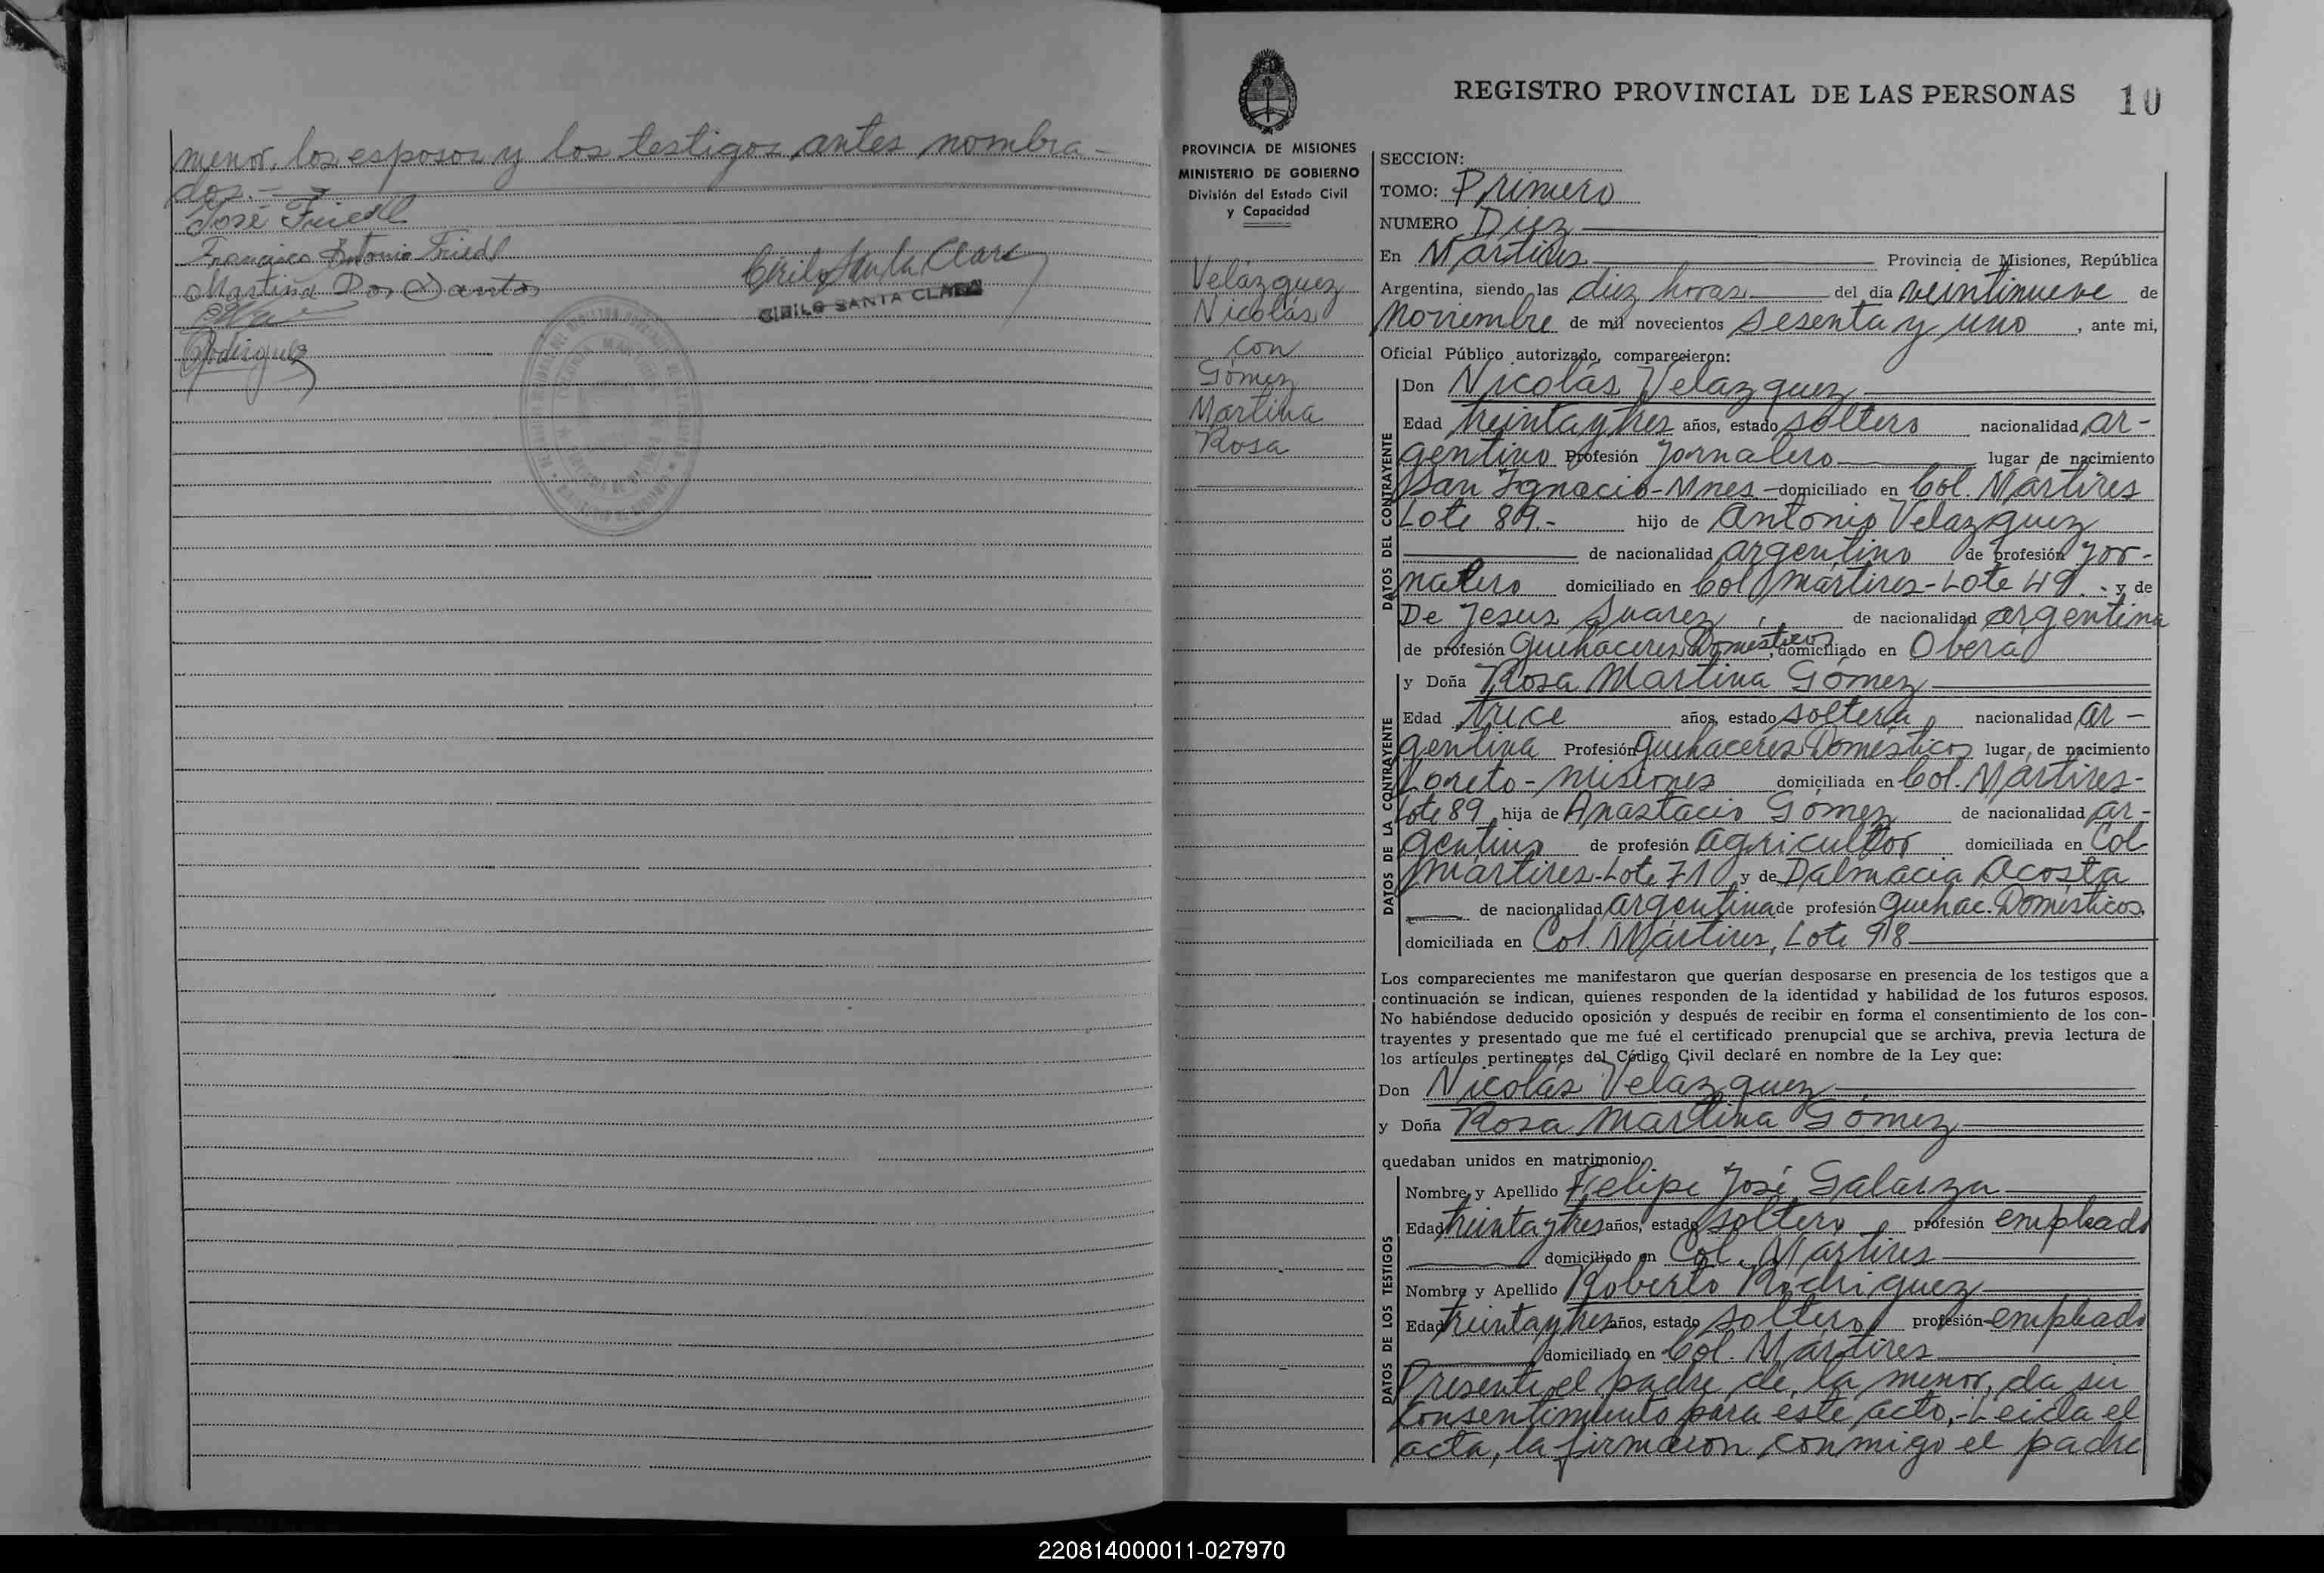 menor, los esposos y los testigos antes nombra-
dos.-
José Friedl
Francisco Antonio Friedl
Martina Dos Santos
Rodriguez
Cirilo Santa Clara
CIRILO SANTA CLARA
REGISTRO PROVINCIAL DE LAS PERSONAS 10
PROVINCIA DE MISIONES
MINISTERIO DE GOBIERNO
División del Estado Civil
y Capacidad
Velázquez
Nicolás
con
Gómez
Martina
Rosa
SECCION:
TOMO: Primero
NUMERO Diez
En Mártires Provincia de Misiones, República
Argentina, siendo las diez horas del día veintinueve de
Noviembre de mil novecientos sesenta y uno, ante mi,
Oficial Público autorizado, comparecieron:
DATOS DEL CONTRAYENTE
Don Nicolás Velazquez
Edad treinta y tres años, estado soltero nacionalidad ar-
gentino Profesión Jornalero lugar de nacimiento
San Ignacio-Mnes-domiciliado en Col. Mártires
Lote 89.- hijo de Antonio Velazquez
de nacionalidad argentino de profesión Jor-
nalero domiciliado en Col Mártires-Lote 49.- y de
De Jesus Suarez, de nacionalidad argentina
de profesión Quehaceres Domésticos, domiciliado en Oberá
DATOS DE LA CONTRAYENTE
y Doña Rosa Martina Gómez
Edad trece años, estado soltera, nacionalidad ar-
gentina Profesión Quehaceres Domésticos lugar de nacimiento
Loreto-Misiones domiciliada en Col. Mártires-
Lote 89, hija de Anastacio Gómez de nacionalidad ar-
gentino de profesión agricultor domiciliada en Col
Mártires-Lote 71 y de Dalmacia Acosta
de nacionalidad argentina de profesión quehac. Domésticos
domiciliada en Col. Mártires, Lote 98
Los comparecientes me manifestaron que querían desposarse en presencia de los testigos que a
continuación se indican, quienes responden de la identidad y habilidad de los futuros esposos.
No habiéndose deducido oposición y después de recibir en forma el consentimiento de los con-
trayentes y presentado que me fué el certificado prenupcial que se archiva, previa lectura de
los artículos pertinentes del Código Civil declaré en nombre de la Ley que:
Don Nicolás Velazquez
y Doña Rosa Martina Gómez
quedaban unidos en matrimonio.
DATOS DE LOS TESTIGOS
Nombre y Apellido Felipe José Galarza
Edad treinta y tres años, estado soltero, profesión empleado
domiciliado en Col. Mártires
Nombre y Apellido Roberto Rodriguez
Edad treinta y tres años, estado soltero profesión empleado
domiciliado en Col. Mártires
Presente el padre de la menor, da su
consentimiento para este acto.-Leida el
acta, la firmaron conmigo el padre
220814000011-027970